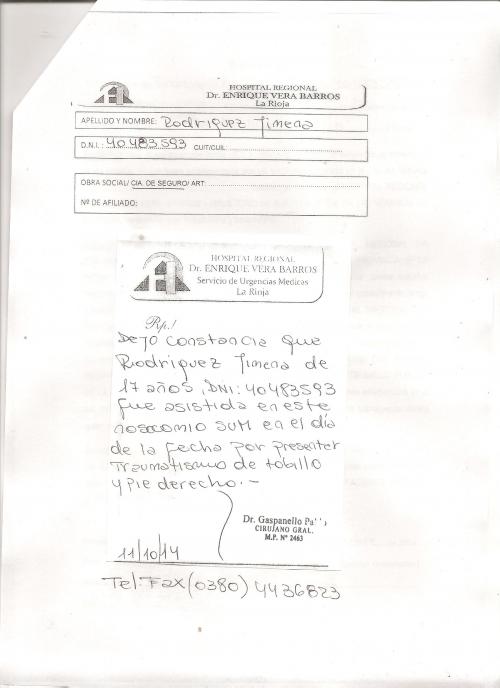 HOSPITAL REGIONAL
Dr. ENRIQUE VERA BARROS
La Rioja
APELLIDO Y NOMBRE: Rodriguez Jimena
D.N.I.: 40483593 CUIT/CUIL:
OBRA SOCIAL/ CIA. DE SEGURO/ ART:
Nº DE AFILIADO:
HOSPITAL REGIONAL
Dr. ENRIQUE VERA BARROS
Servicio de Urgencias Medicas
La Rioja
Rp./
Dejo constancia que
Rodriguez Jimena de
17 años, DNI: 40483593
fue asistida en este
nosocomio SUM en el día
de la fecha por presenter
Traumatismo de tobillo
y pie derecho.-
Dr. Gaspanello
CIRUJANO GRAL.
M.P. Nº 2463
11/10/14
Tel: Fax (0380) 4436823